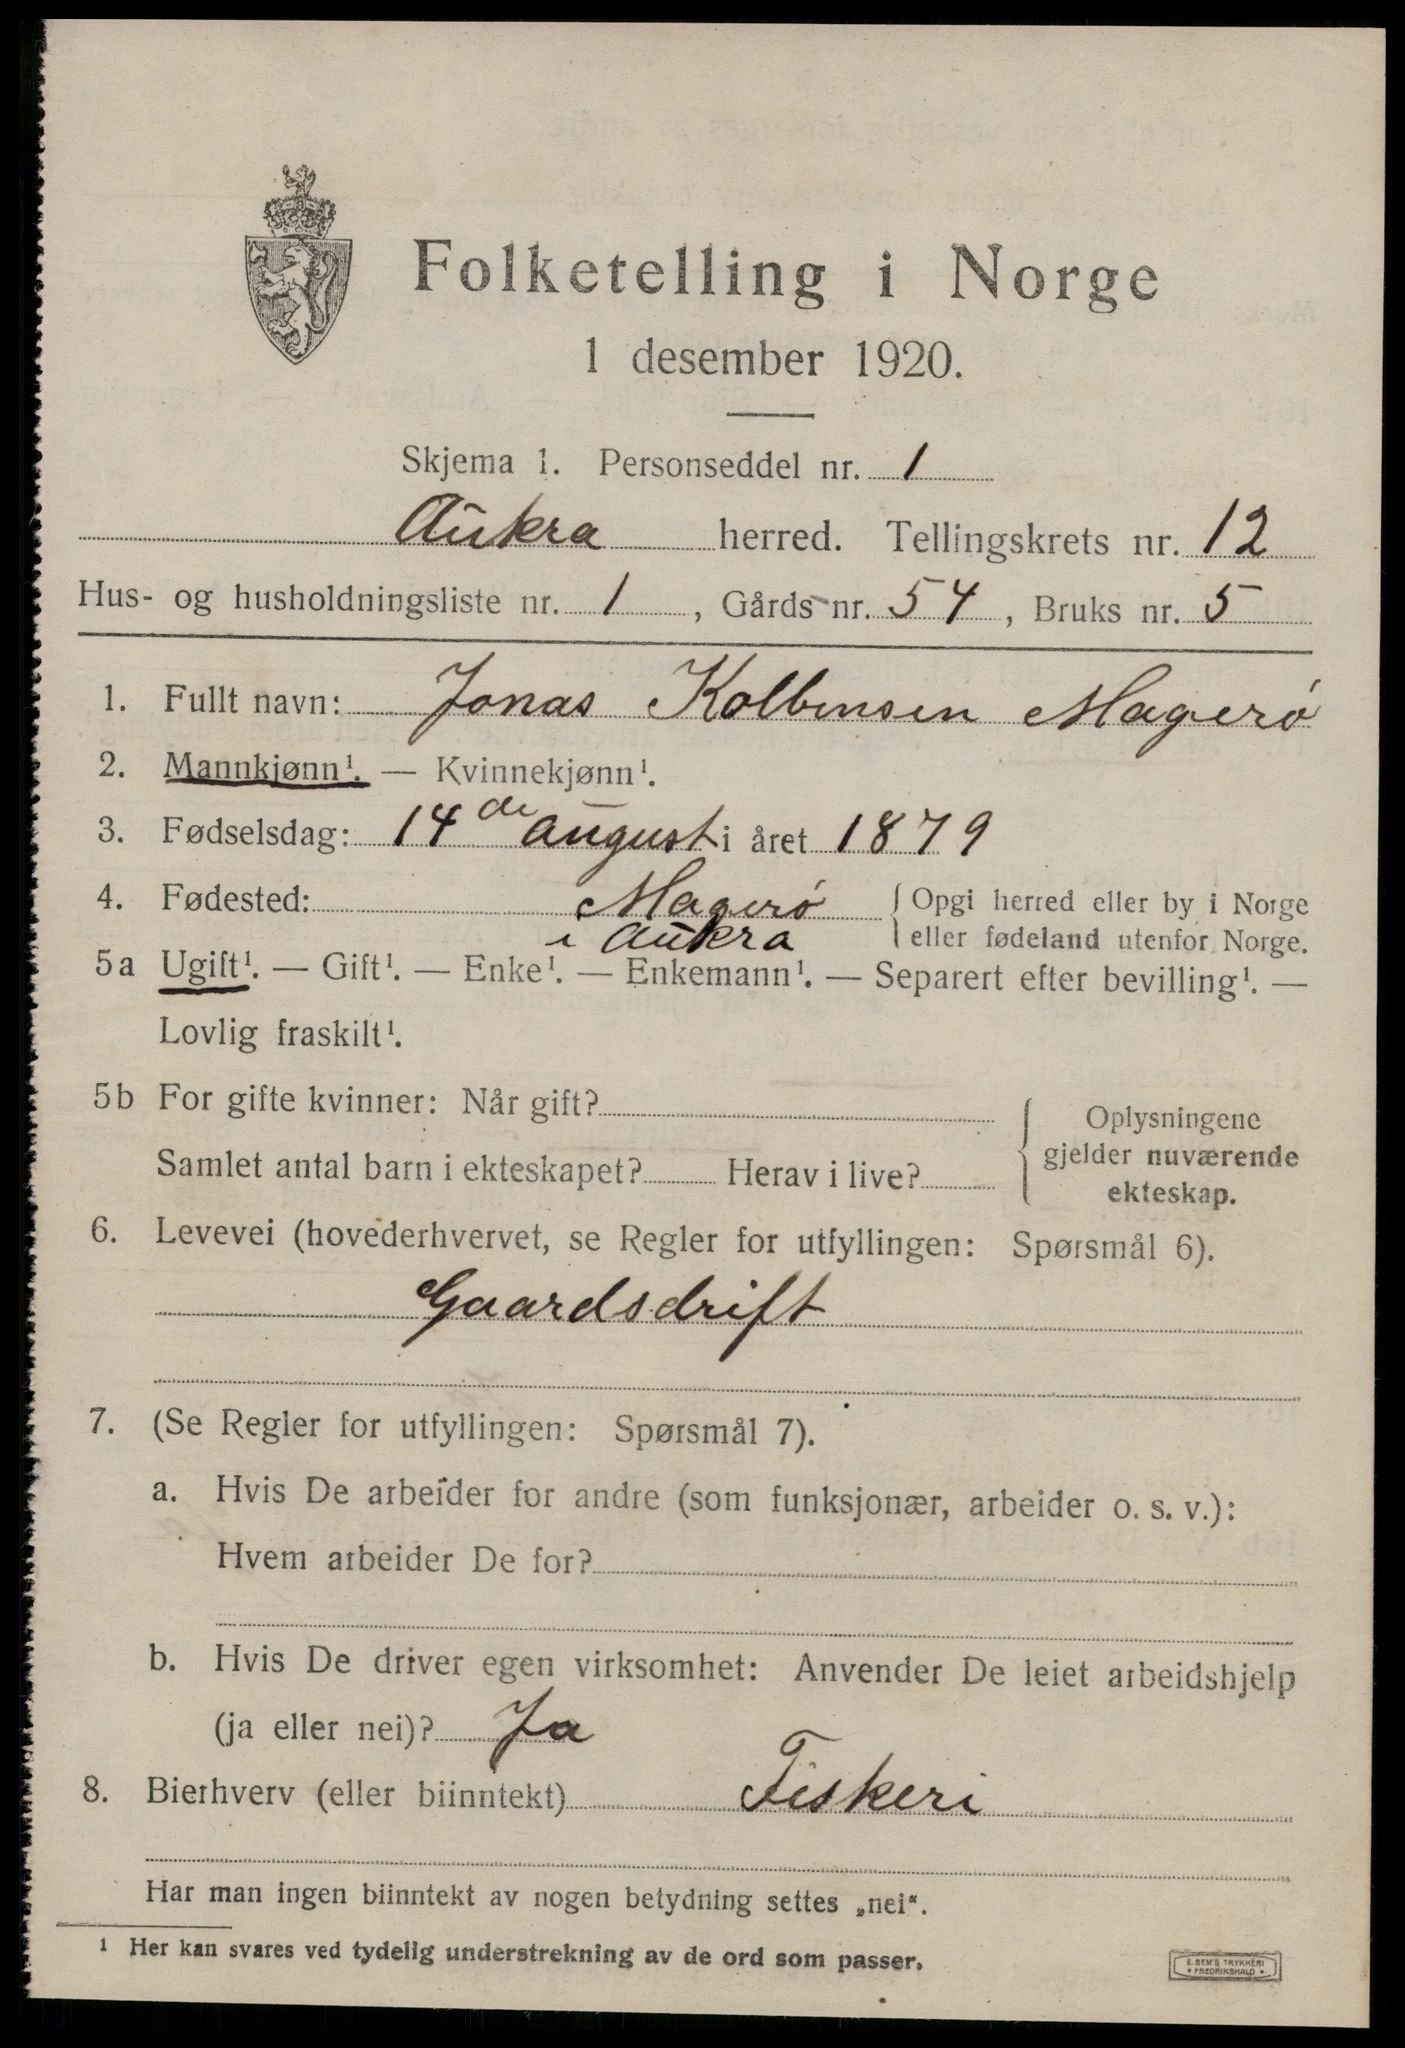 Folketelling i Norge
1 desember 1920.
Skjema 1. Personseddel nr. 1
Aukra herred. Tellingskrets nr. 12
Hus- og husholdningsliste nr. 1, Gårds nr. 54, Bruks nr. 5
1. Fullt navn: Jonas Kolbensen Magerö
2. Mannkjønn¹. — Kvinnekjønn¹.
3. Fødselsdag: 14de august i året 1879
4. Fødested: Magerö { Opgi herred eller by i Norge
i Aukra eller fødeland utenfor Norge.
5a Ugift¹. — Gift¹. — Enke¹. — Enkemann¹. — Separert efter bevilling¹. —
Lovlig fraskilt¹.
5b For gifte kvinner: Når gift? { Oplysningene
Samlet antal barn i ekteskapet? Herav i live? gjelder nuværende
ekteskap.
6. Levevei (hovederhvervet, se Regler for utfyllingen: Spørsmål 6).
Gaardsdrift
7. (Se Regler for utfyllingen: Spørsmål 7).
a. Hvis De arbeider for andre (som funksjonær, arbeider o. s. v.):
Hvem arbeider De for?
b. Hvis De driver egen virksomhet: Anvender De leiet arbeidshjelp
(ja eller nei)? Ja
8. Bierhverv (eller biinntekt) Fiskeri
Har man ingen biinntekt av nogen betydning settes „nei“.
¹ Her kan svares ved tydelig understrekning av de ord som passer.
E. SEM'S TRYKKERI
* FREDRIKSHALD *